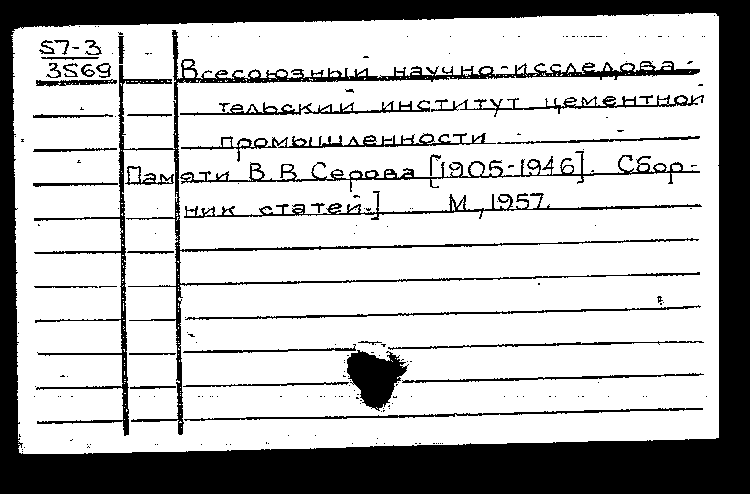 57-3
3569
Всесоюзный научно-исследова-
тельский институт цементной
промышленности
Памяти В.В Серова [1905-1946]. Сбор-
ник статей.] М., 1957.